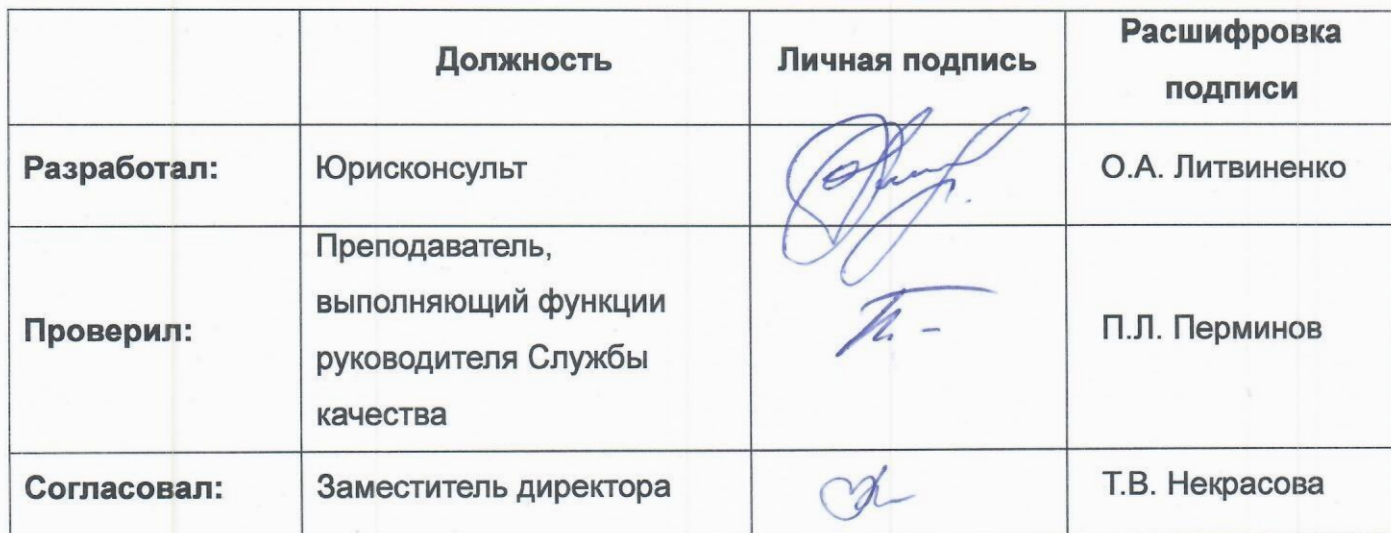 Должность
Личная подпись
Расшифровка
подписи
Разработал:
Юрисконсульт
О.А. Литвиненко
Проверил:
Преподаватель,
выполняющий функции
руководителя Службы
качества
П.Л. Перминов
Согласовал:
Заместитель директора
Т.В. Некрасова